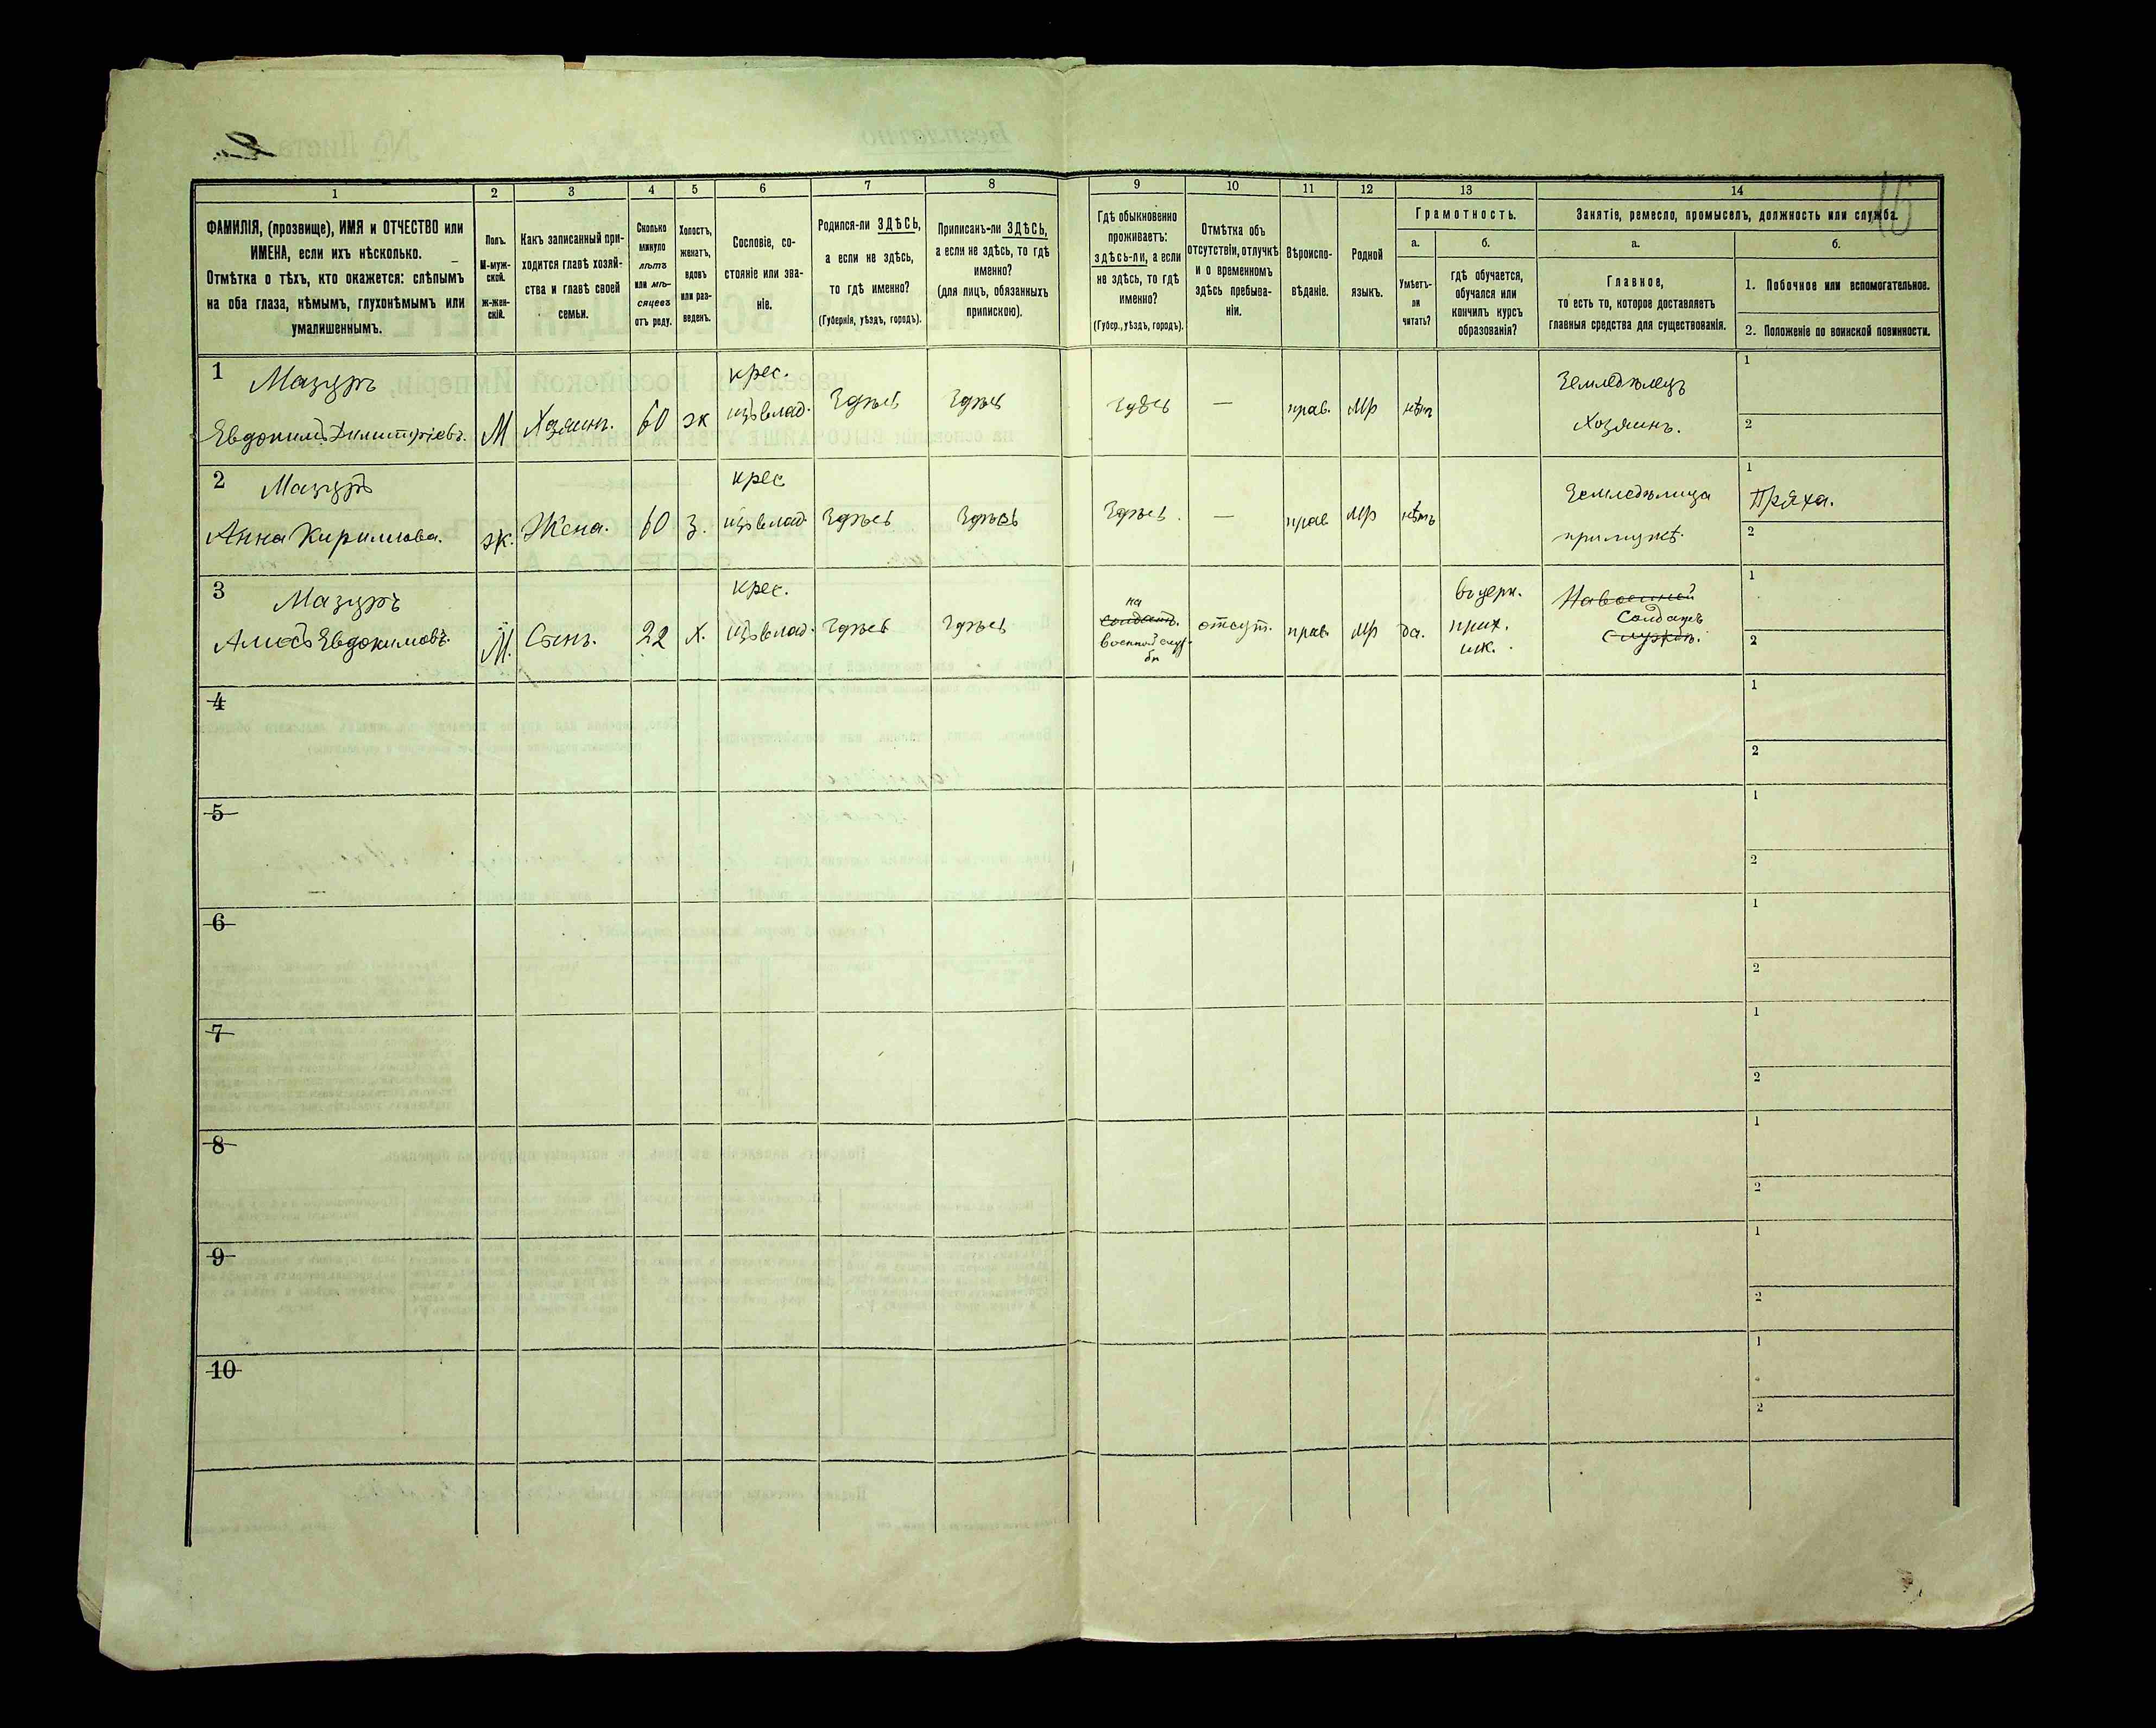 16
1 2 3 4 5 6 7 8 9 10 11 12 13 14
ФАМИЛІЯ, (прозвище), ИМЯ и ОТЧЕСТВО или
ИМЕНА, если ихъ нѣсколько.
Отмѣтка о тѣхъ, кто окажется: слѣпымъ
на оба глаза, нѣмымъ, глухонѣмымъ или
умалишеннымъ.
Полъ.
М-муж-
ской.
ж-жен-
скій.
Какъ записанный при-
ходится главѣ хозяй-
ства и главѣ своей
семьи.
Сколько
минуло
лѣтъ
или мѣ-
сяцевъ
отъ роду.
Холостъ,
женатъ,
вдовъ
или раз-
веденъ.
Сословіе, со-
стояніе или зва-
ніе.
Родился-ли ЗДѢСЬ,
а если не здѣсь,
то гдѣ именно?
(Губернія, уѣздъ, городъ).
Приписанъ-ли ЗДѢСЬ,
а если не здѣсь, то гдѣ
именно?
(для лицъ, обязанныхъ
припискою).
Гдѣ обыкновенно
проживаетъ:
здѣсь-ли, а если
не здѣсь, то гдѣ
именно?
(Губер., уѣздъ, городъ).
Отмѣтка объ
отсутствіи, отлучкѣ
и о временномъ
здѣсь пребыва-
ніи.
Вѣроиспо-
вѣданіе.
Родной
языкъ.
Грамотность.
а.
Умѣетъ-
ли
читать?
б.
гдѣ обучается,
обучался или
кончилъ курсъ
образованія?
Занятіе, ремесло, промыселъ, должность или служба.
а.
Главное,
то есть то, которое доставляетъ
главныя средства для существованія.
б.
1. Побочное или вспомогательное.
2. Положеніе по воинской повинности.
1 Мазуръ
Евдокимъ Димитріевъ.
М
Хозяинъ.
60
ж
крес.
изъ влад.
Здѣсь
Здѣсь
Здѣсь
—
прав.
мр
нѣтъ
Земледѣлецъ
Хозяинъ.
1
2
2 Мазуръ
Анна Кирилова.
ж.
Жена.
60
з.
крес
изъ влад.
Здѣсь
Здѣсь
Здѣсь.
—
прав
мр
нѣтъ
Земледѣлица
при мужѣ.
1
Пряха.
2
3 Мазуръ
Алексѣ Евдокимовъ.
М.
Сынъ.
22
х.
крес.
изъ влад.
Здѣсь
Здѣсь
на
солдатъ.
военной служ-
бѣ
отсут.
прав.
мр
да.
прих.
шк.
На военной
Солдатъ
службѣ.
1
2
4
1
2
5
1
2
6
1
2
7
1
2
8
1
2
9
1
2
10
1
2